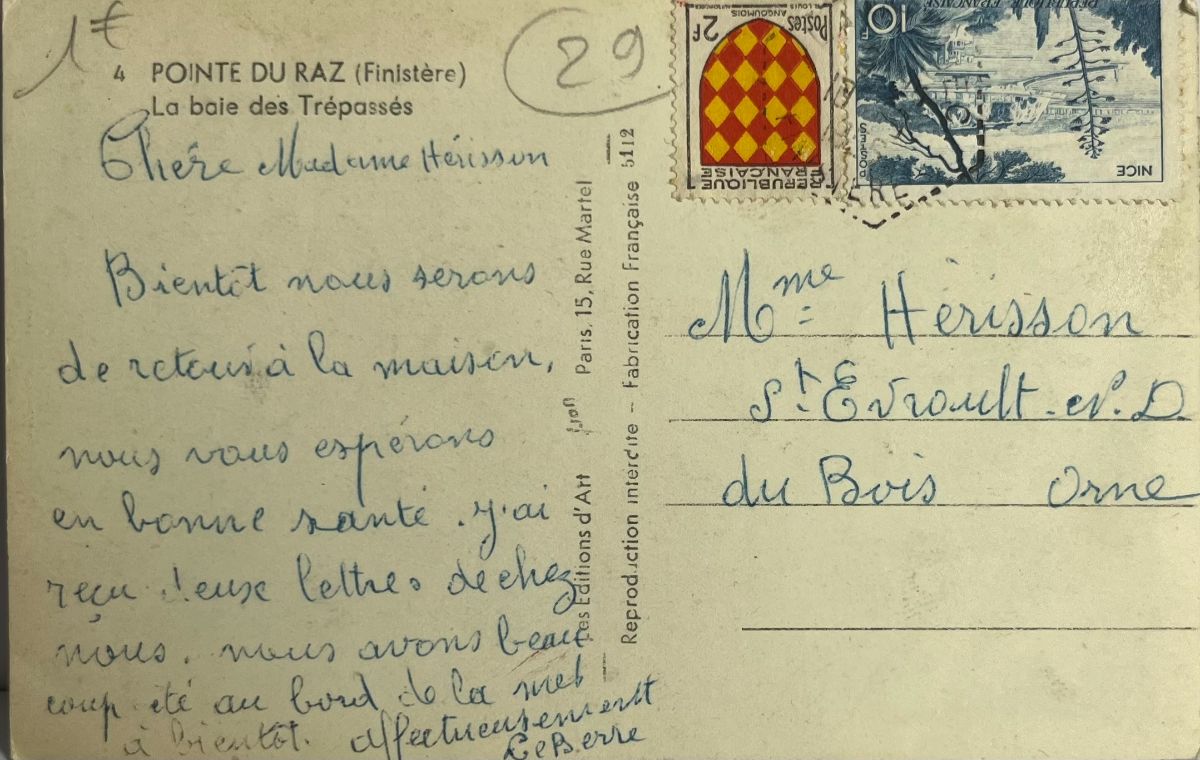 1€
29
4 POINTE DU RAZ (Finistère)
La baie des Trépassés
Chère Madame Hérisson
Bientôt nous serons
de retour à la maison,
nous vous espérons
en bonne santé. J'ai
reçu deux lettres de chez
nous. nous avons beau
coup été au bord de la mer
à bientôt. affectueusement
Le Berre
Les Editions d'Art Yvon Paris, 15, Rue Martel
Reproduction interdite – Fabrication Française 5112
2F
Postes
ANGOUMOIS
RÉPUBLIQUE
FRANÇAISE
10F
RÉPUBLIQUE FRANÇAISE
POSTES
NICE
Mme Hérisson
St. Evroult. N. D
du Bois Orne